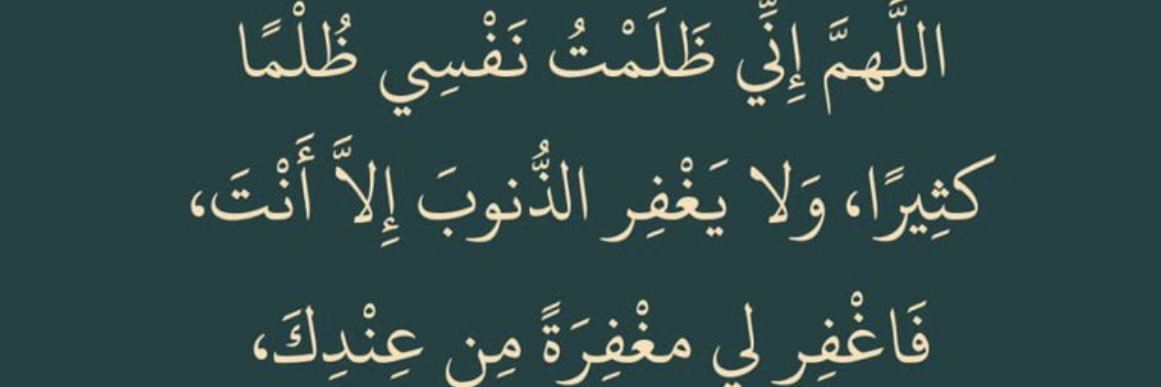 اللَّهمَّ إِنِّي ظَلَمْتُ نَفْسِي ظُلْمًا
كثِيرًا، وَلا يَغْفِر الذُّنوبَ إِلاَّ أَنْتَ،
فَاغْفِر لي مغْفِرَةً مِن عِنْدِكَ،